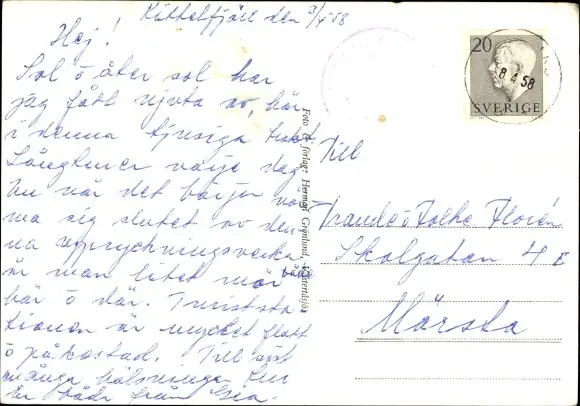 Kittelfjäll den 3/4 58
Hej!
Sol ö åter sol har
jag fått njuta av, här
i denna tjusiga trakt.
Långturer varje dag
Nu när det börjar när
ma sig slutet av den
na uppryckningsvecka
är man litet mör både
här ö där. Turiststa
tionen är mycket flott
ö påkostad. Till sist
många hälsningar
från
Foto & förlag: Herman Grönlund, Västerås
20
8.4.58
SVERIGE
Till
ö Folke Florén
Skolgatan 4 E
Märsta